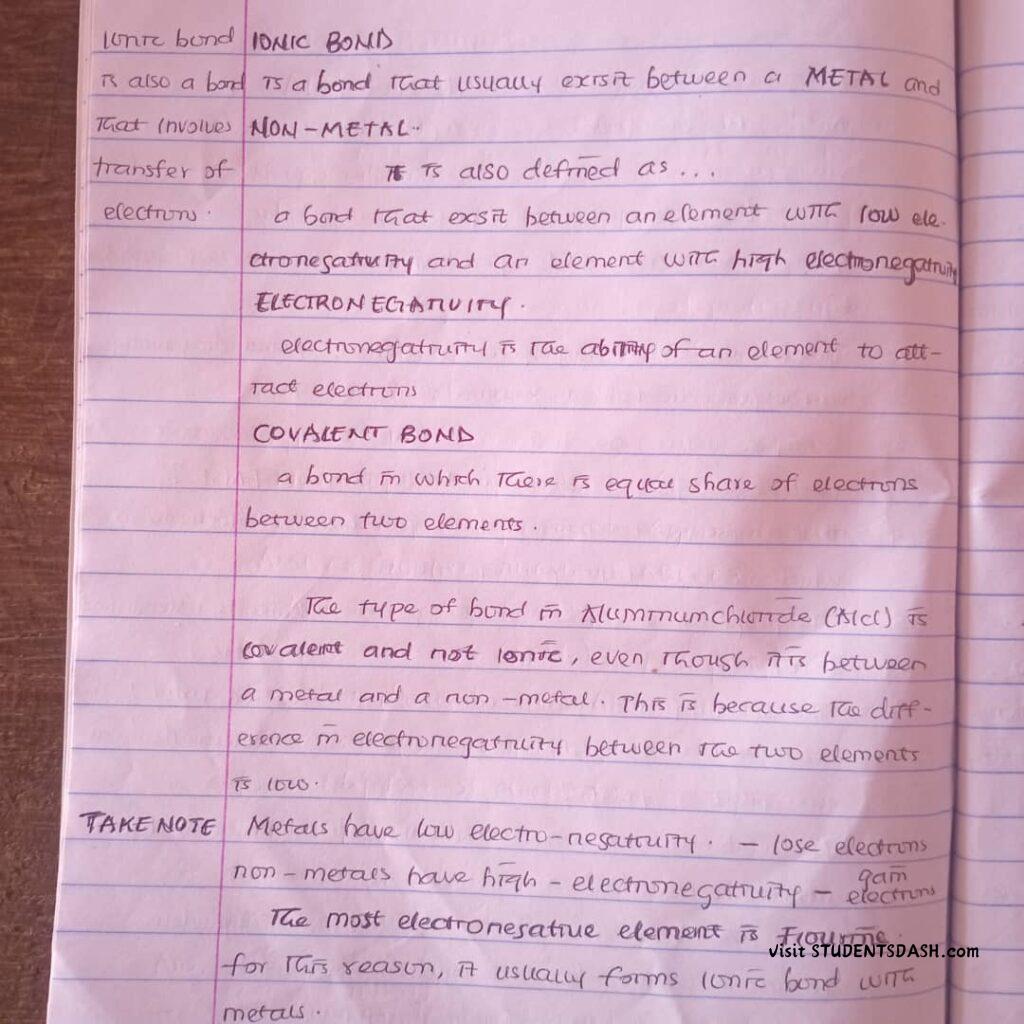 Ionic bond
is also a bond
that involves
transfer of
electrons.
IONIC BOND
is a bond that usually exisit between a METAL and
NON-METAL..
It is also defined as...
a bond that exsit between an element with low ele-
ctronegativity and an element with high electronegativity
ELECTRONEGATIVITY.
electronegativity is the ability of an element to att-
ract electrons
COVALENT BOND
a bond in which there is equal share of electrons
between two elements.
The type of bond in Aluminumchloride (AlCl) is
covalent and not ionic, even though it is between
a metal and a non-metal. This is because the diff-
erence in electronegativity between the two elements
is low.
TAKE NOTE
Metals have low electro-negativity. - lose electrons
non-metals have high - electronegativity - gain
electrons
The most electronegative element is Flourine.
for this reason, it usually forms ionic bond with
metals.
visit STUDENTSDASH.com